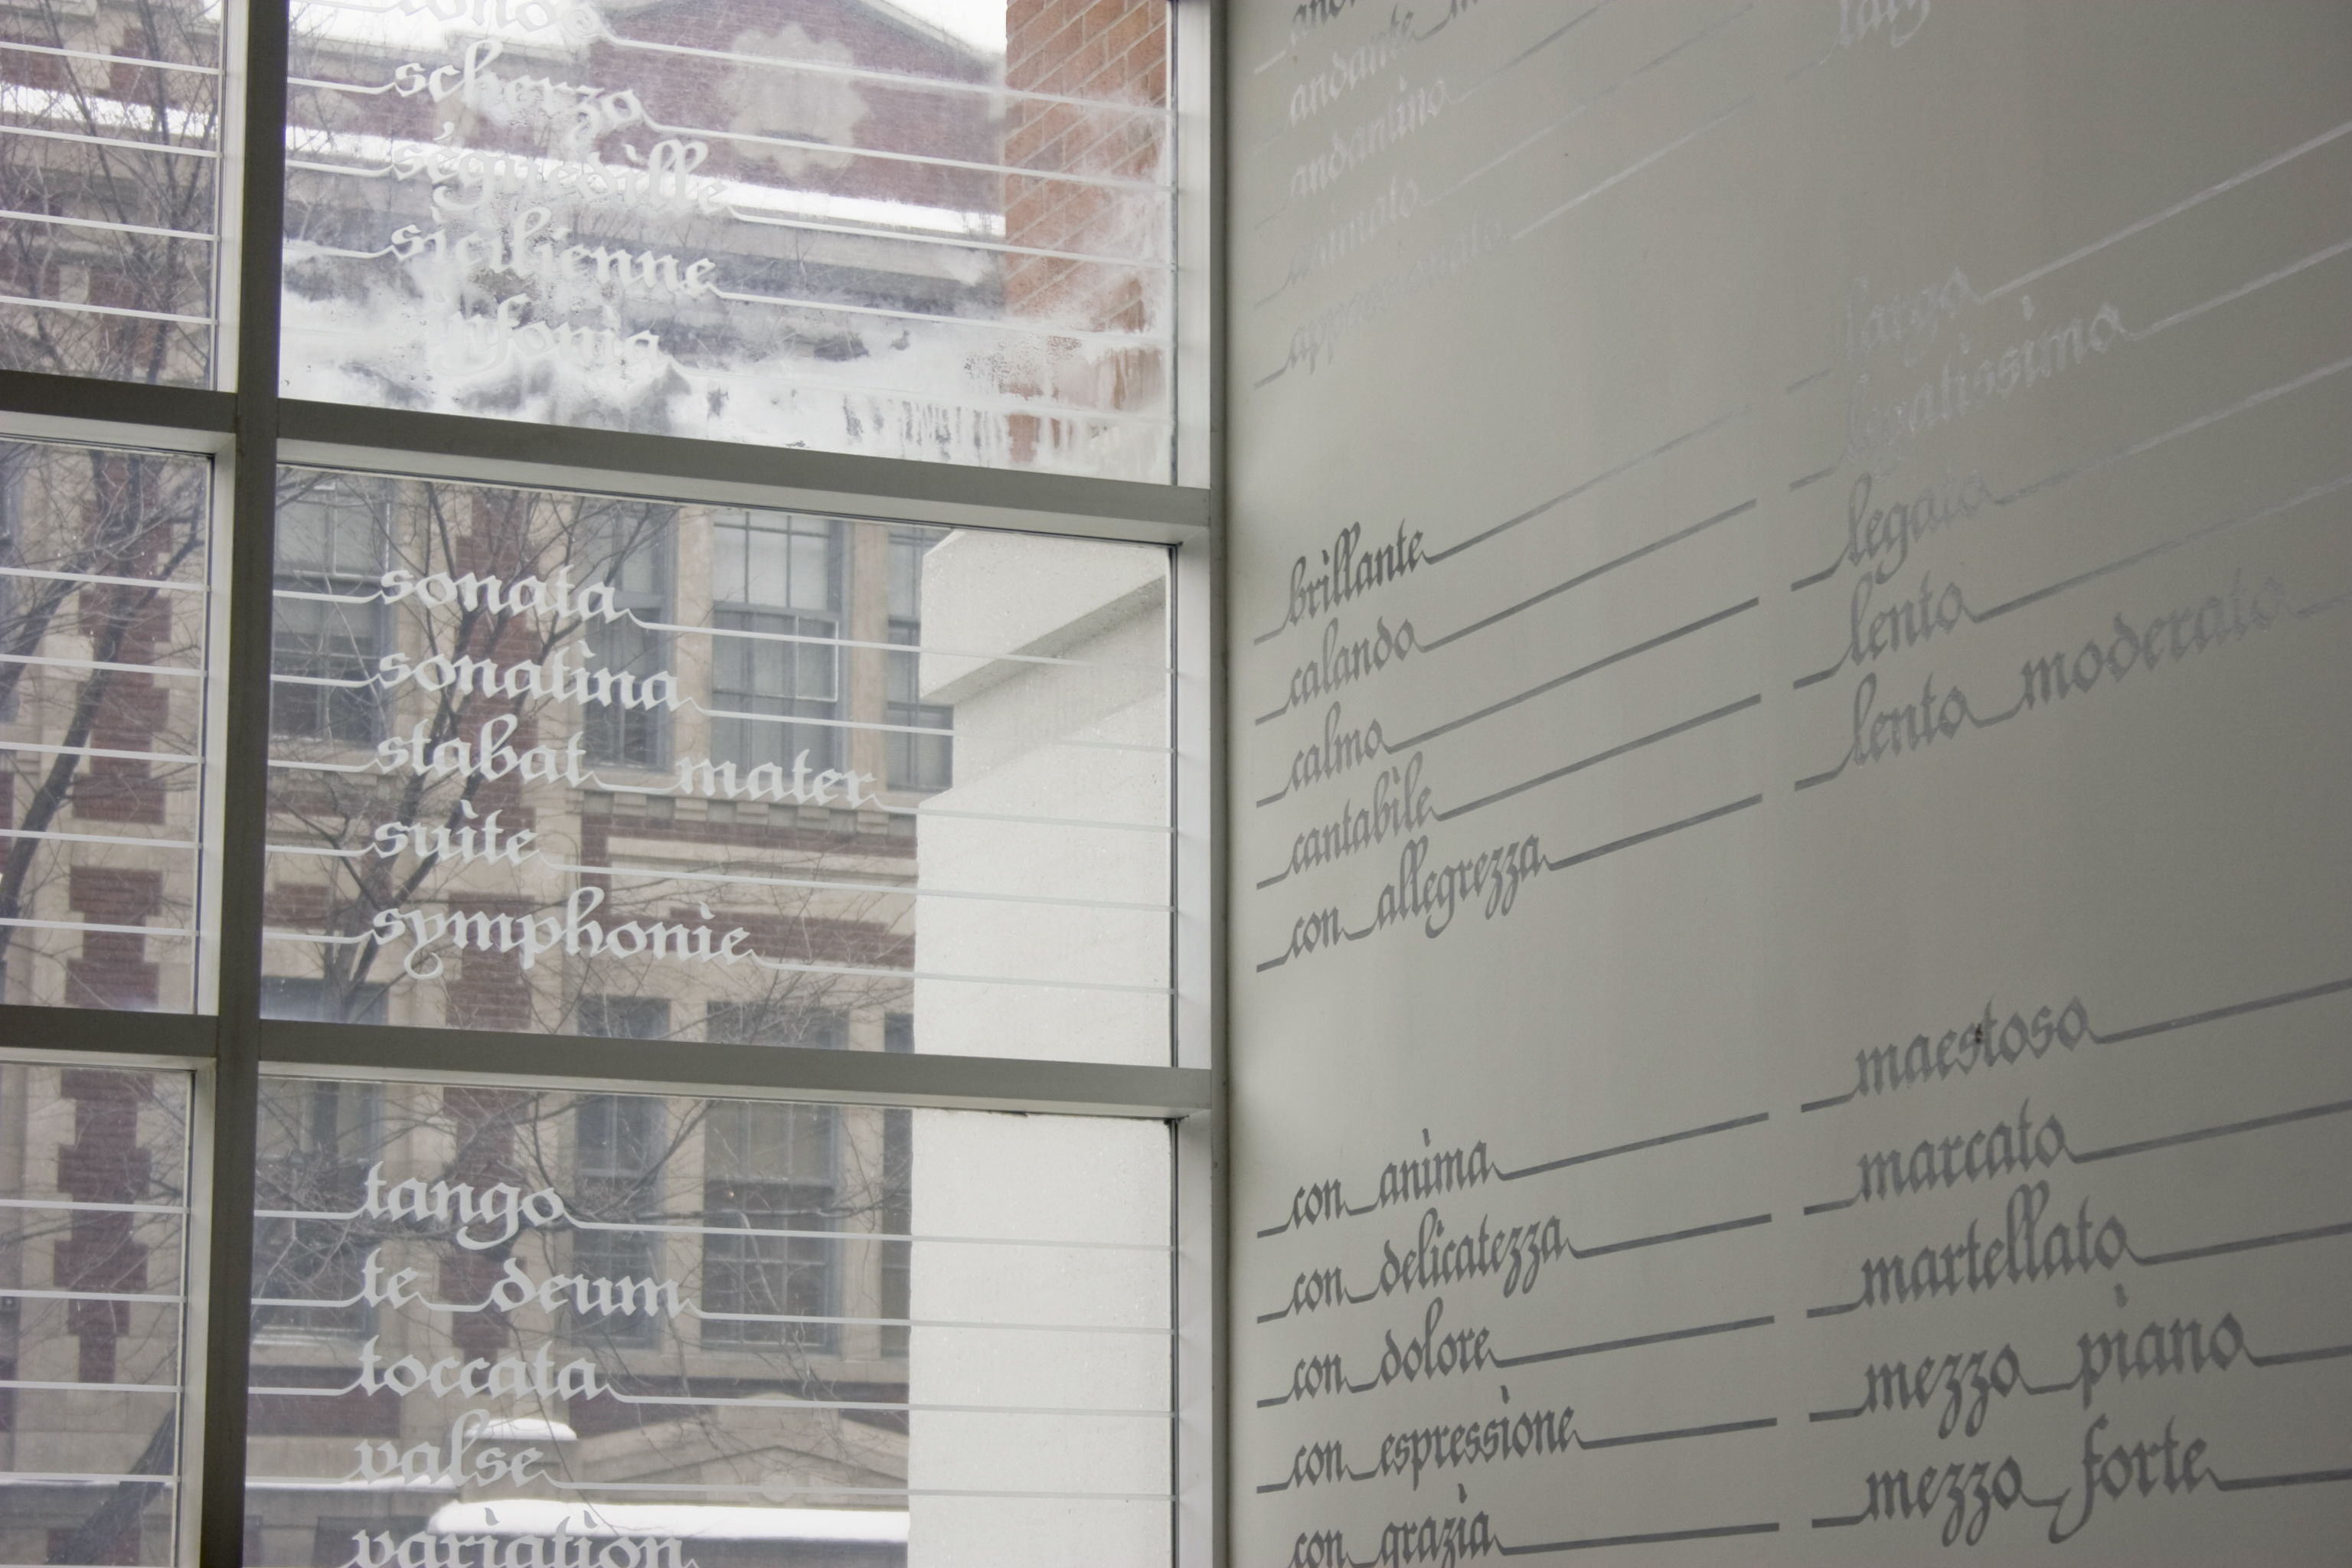 rondo
scherzo
séguedille
sicilienne
sinfonia
sonata
sonatina
stabat mater
suite
symphonie
tango
te deum
toccata
valse
variation
andante
andantino
animato
appassionato
brillante
calando
calmo
cantabile
con allegrezza
con anima
con delicatezza
con dolore
con espressione
con grazia
largo
legatissimo
legato
lento
lento moderato
maestoso
marcato
martellato
mezzo piano
mezzo forte